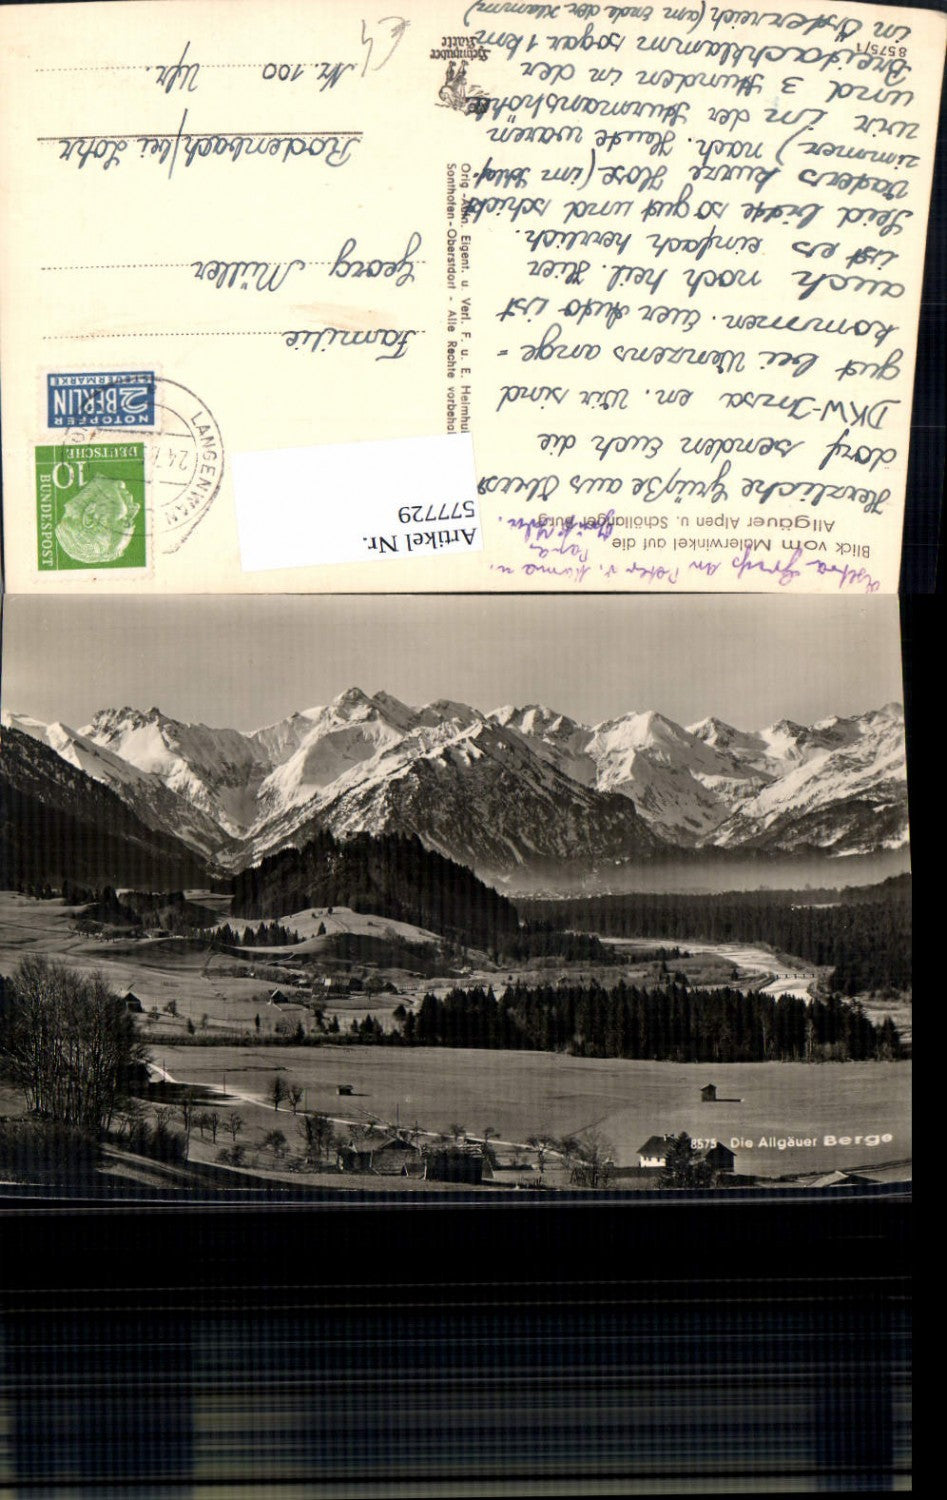 Aſtra Gruß an Peter u. Mama u.
Papa
Blick vom Malerwinkel auf die
Allgäuer Alpen u. Schöllanger Burg
Herzliche Grüße aus Obers
dorf senden Euch die
DKW-Insa en. Wir sind
gut bei Wenzens ange =
kommen. Euer Auto ist
auch noch heil. Hier
ist es einfach herrlich.
Seid bitte so gut und schickt
Vaters kurze Hose (im Schlaf-
zimmer) nach. Heute waren
wir in der Sturmanshöhle
und 3 Stunden in der
Breitachklamm sogar 1 km
in Österreich (am Ende der Klamm)
8575/1
Artikel Nr.
577729
Orig.-Aufn. Eigent. u. Verl. F. u. E. Heimhu
Sonthofen-Oberstdorf - Alle Rechte vorbehal
Schnauber
Karte
DEUTSCHE
BUNDESPOST
10
NOTOPFER
2 BERLIN
STEUERMARKE
LANGENWAN
24.7
Familie
Georg Müller
Rodenbach/bei Lohr
Nr. 100 Ufr.
€4
8575 Die Allgäuer Berge